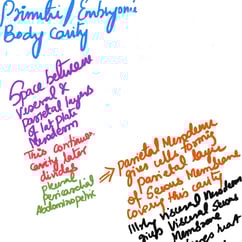 Primitive / Embryonic
Body Cavity
Space between
Visceral &
parietal layers
of lat plate
Mesoderm
This continues
cavity later
divides
pleural
pericardial
Abdominopelvic
Parietal Mesoderm
gives cells forming
parietal layer
of Serous Membrane
covering this cavity
Illrly Visceral Mesoderm
gives Visceral Serous
Membrane